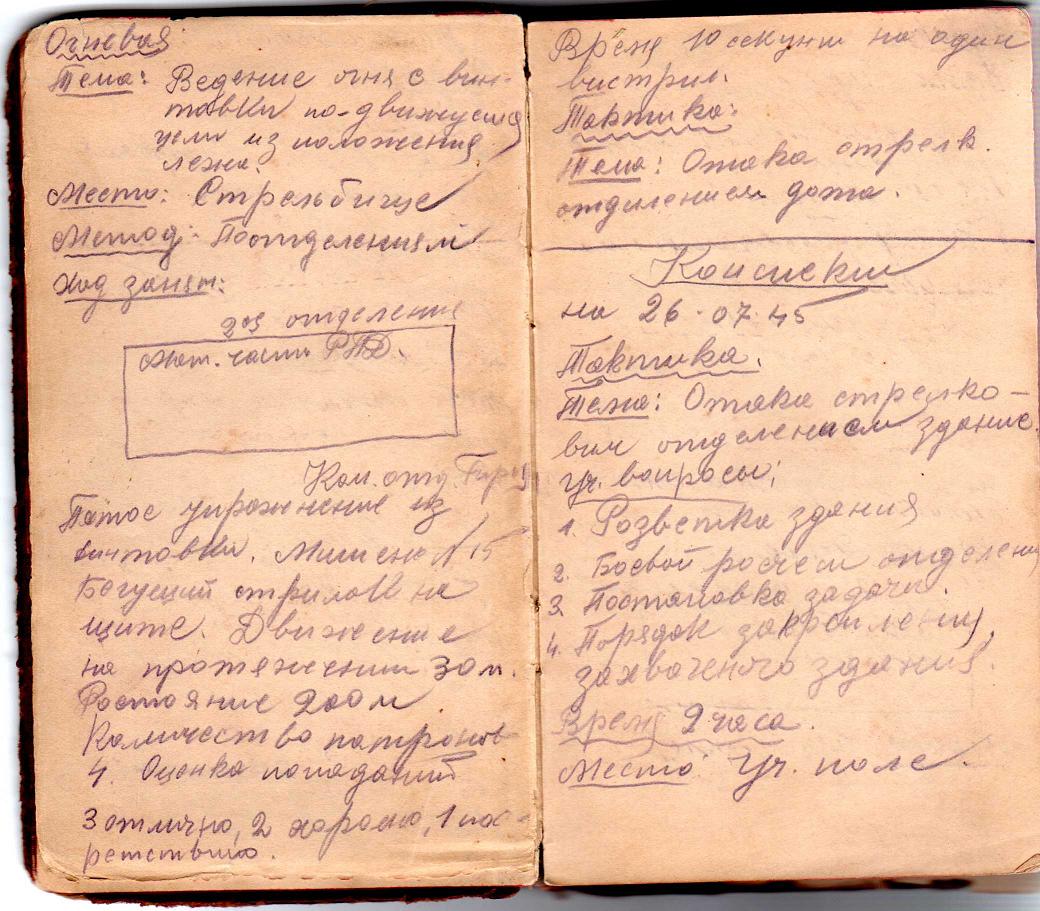 Огневая
Тема: Ведение огня с вин-
товки по-движущися
цели из положения
лежа.
Место: Стрельбище
Метод: Поотделениям
Ход занят:
2ое отделение
Мат. части РПД.
Ком. отд.
Пятое упражнение из
винтовки. Мишень №15
Бегущий стрилок на
щите. Движение
на протяжении 30 м.
Ростояние 200 м
Количество патронов
4. Оценка попаданий
3 отлично, 2 хорошо, 1 пос-
ретствино.
Время 10 секунт на один
вистрил.
Тактика:
Тема: Отака стрелк.
отдилением дота.
Конспект
на 26.07.45
Тактика.
Тема: Отака стрелко-
вим отделением здание.
Уч. вопросы:
1. Розветка здания
2. Боевой росчет отделения
3. Постановка задачи.
4. Порядок закрепления
захваченого здания.
Время 2 часа.
Место Уч. поле.